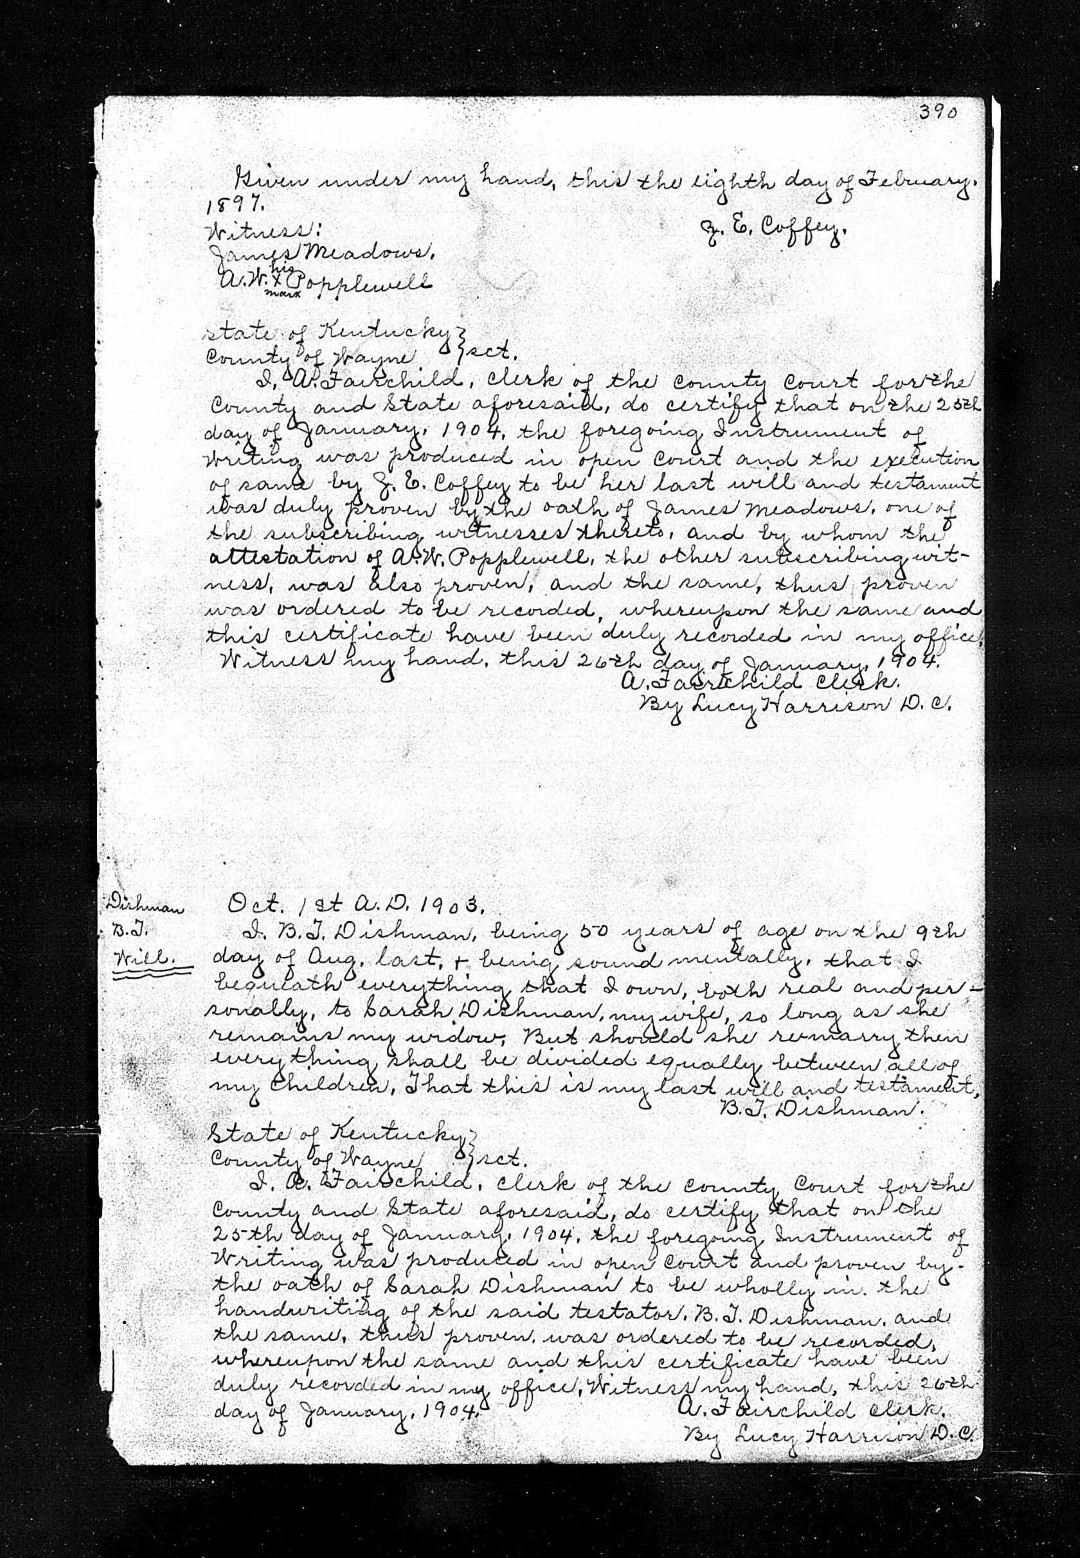 390
Given under my hand, this the eighth day of February.
1897.
Witness:
Z. E. Coffey.
James Meadows.
his
A.W. X Popplewell
mark
State of Kentucky }
County of Wayne } sct.
I, A. Fairchild, Clerk of the County Court for the
County and State aforesaid, do certify that on the 25th
day of January, 1904, the foregoing Instrument of
Writing was produced in open Court and the execution
of same by Z. E. Coffey to be her last will and testament
was duly proven by the oath of James Meadows, one of
the subscribing witnesses thereto, and by whom the
attestation of A.W. Popplewell, the other subscribing wit-
ness, was also proven, and the same, thus proven
was ordered to be recorded, whereupon the same and
this certificate have been duly recorded in my office.
Witness my hand, this 26th day of January, 1904.
A. Fairchild Clerk.
By Lucy Harrison D. C.
Dishman
B.T.
Will.
Oct. 1st A.D. 1903.
I, B.T. Dishman, being 50 years of age on the 9th
day of Aug. last, + being sound mentally, that I
bequeath everything that I own, both real and per-
sonally, to Sarah Dishman, my wife, so long as she
remains my widow, But should she remarry then
everything shall be divided equally between all of
my children, That this is my last will and testament,
B.T. Dishman.
State of Kentucky }
County of Wayne } sct.
I, A. Fairchild, Clerk of the County Court for the
County and State aforesaid, do certify that on the
25th day of January, 1904, the foregoing Instrument of
Writing was produced in open Court and proven by
the oath of Sarah Dishman to be wholly in the
handwriting of the said testator, B.T. Dishman, and
the same, thus proven, was ordered to be recorded,
whereupon the same and this certificate have been
duly recorded in my office, Witness my hand, this 26th
day of January, 1904.
A. Fairchild Clerk.
By Lucy Harrison D.C.